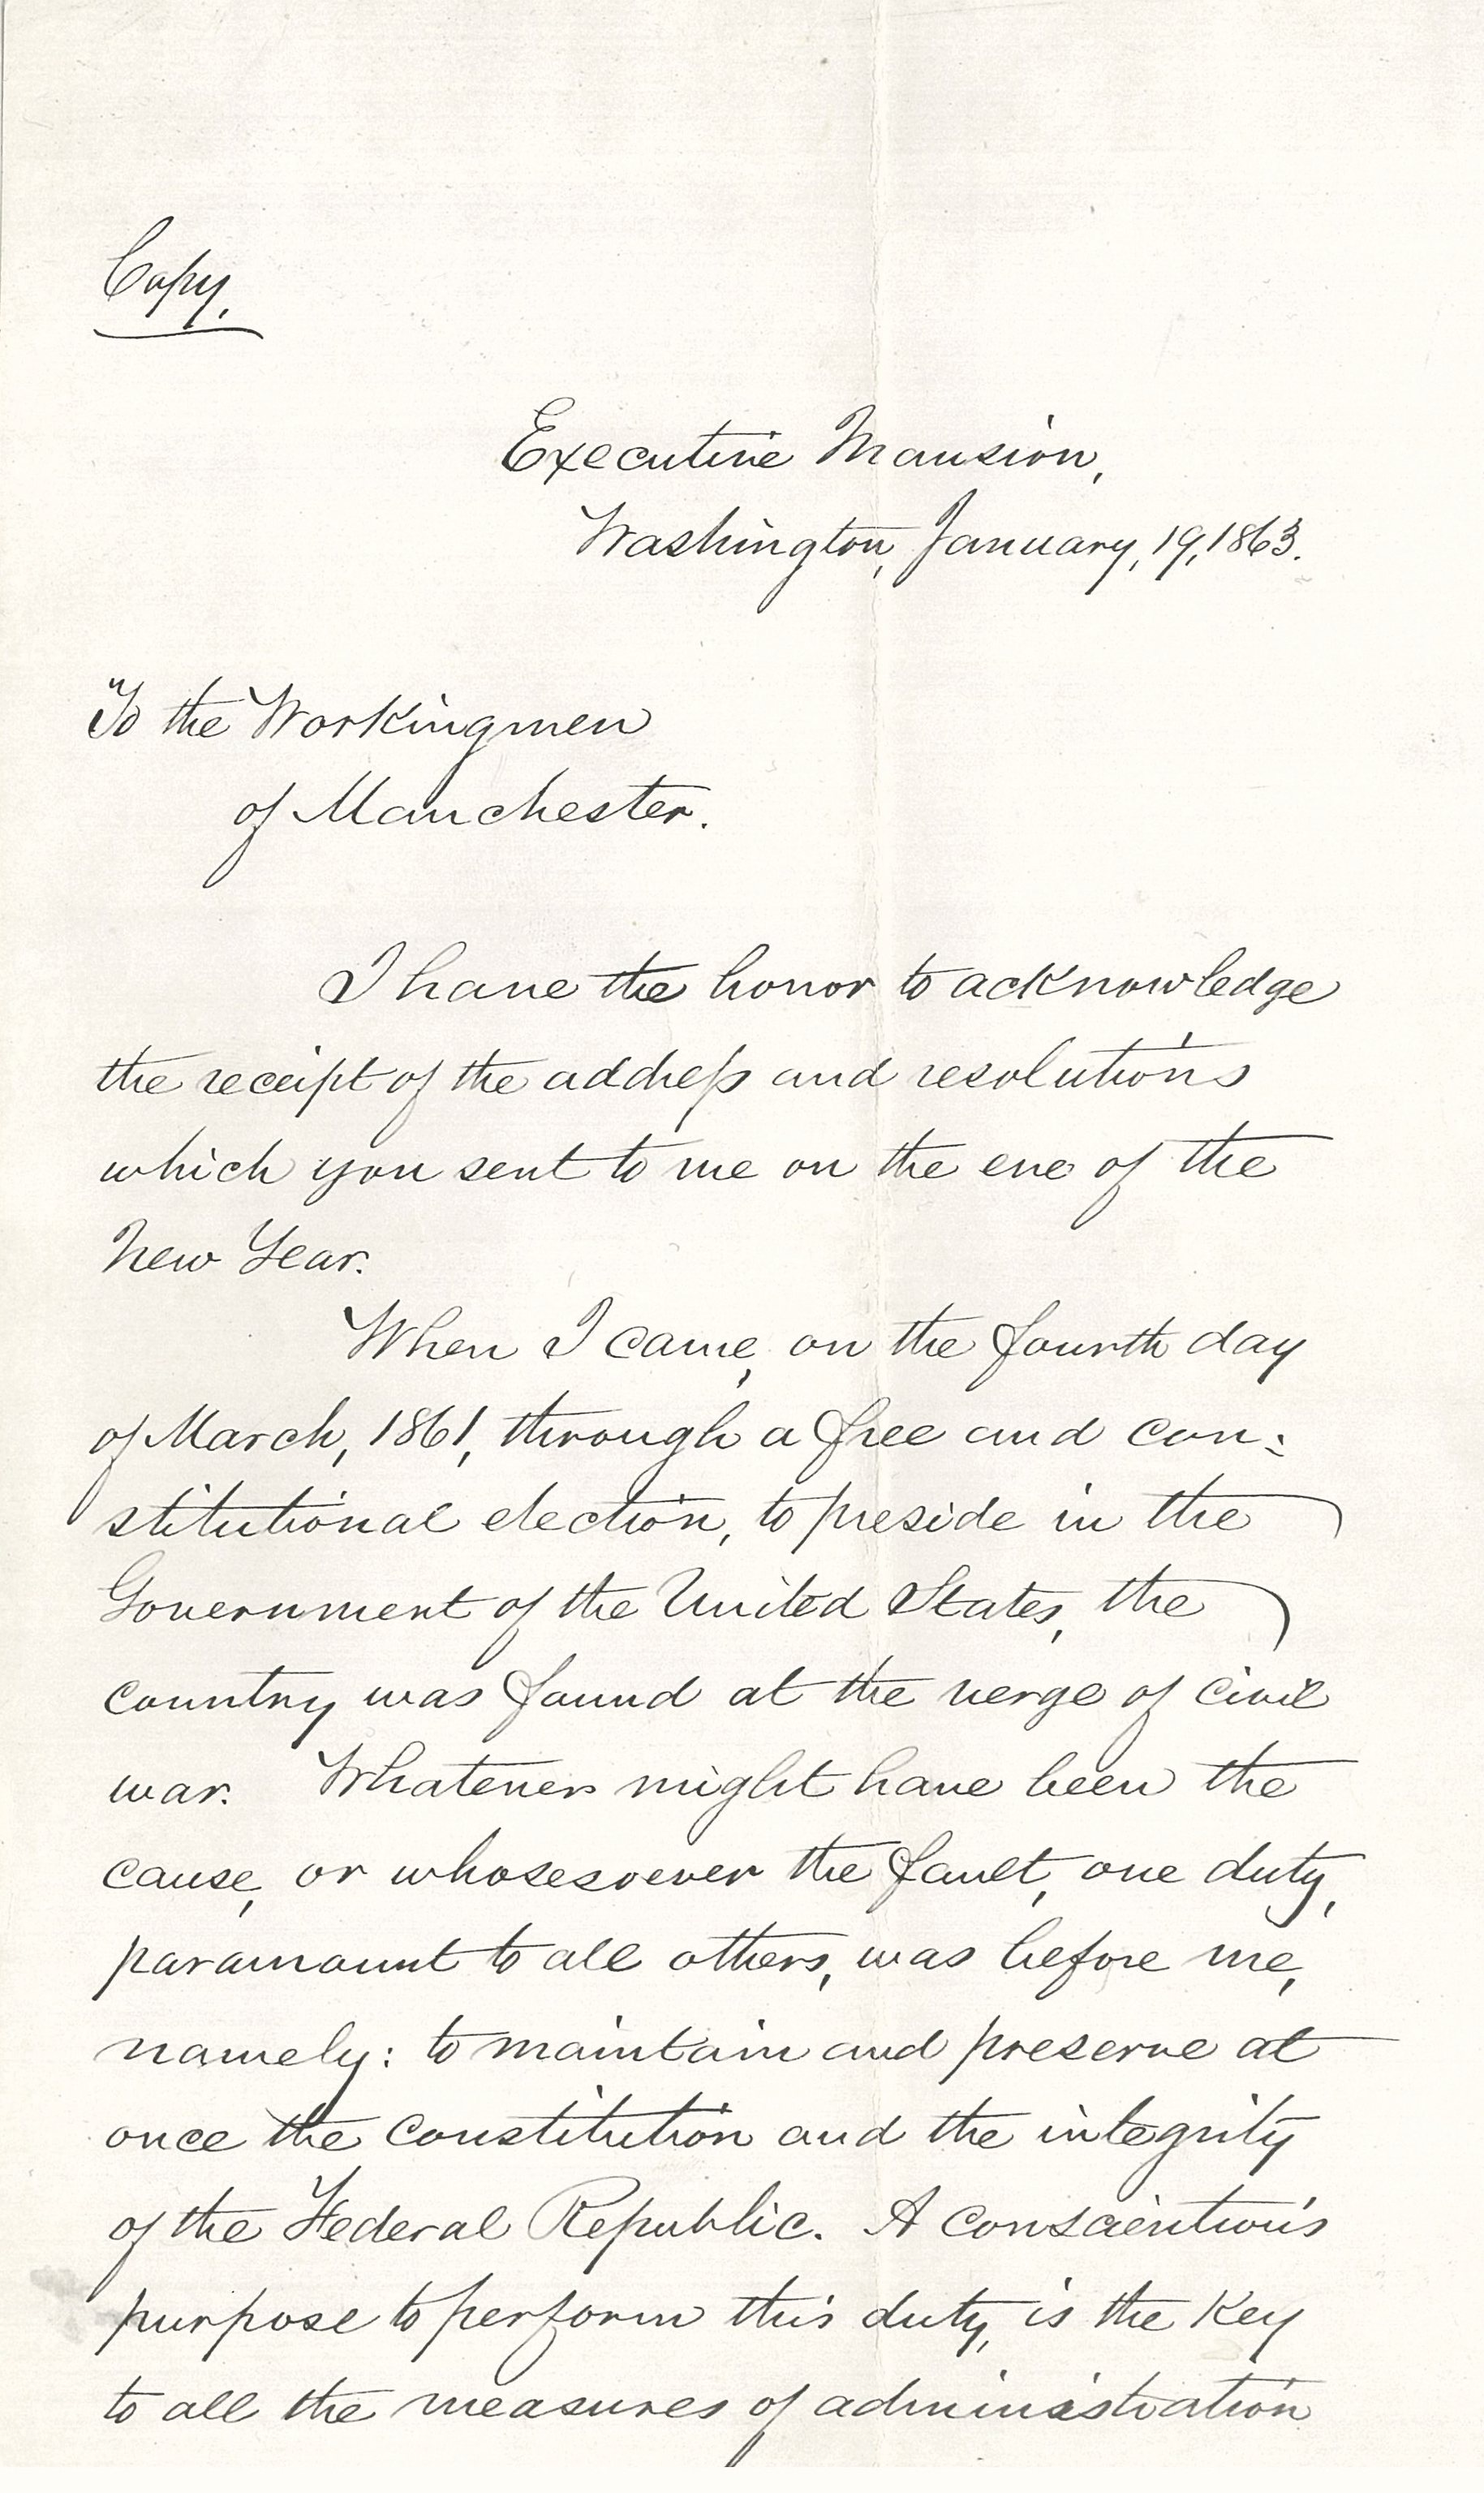 Copy.
Executive Mansion,
Washington, January, 19, 1863.
To the Workingmen
of Manchester.
I have the honor to acknowledge
the receipt of the address and resolutions
which you sent to me on the eve of the
New Year.
When I came, on the fourth day
of March, 1861, through a free and con-
stitutional election, to preside in the
Government of the United States, the
country was found at the verge of civil
war. Whatever might have been the
cause, or whosesoever the fault, one duty,
paramount to all others, was before me,
namely: to maintain and preserve at
once the Constitution and the integrity
of the Federal Republic. A conscientious
purpose to perform this duty, is the key
to all the measures of administration